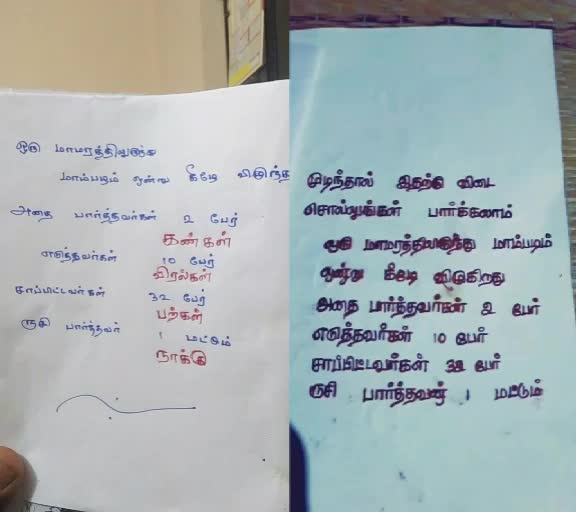 ஒரு மாமரத்திலுருந்து
மாம்பழம் ஒன்று கீழே விழுந்த
அதை பார்த்தவர்கள் 2 பேர்
கண்கள்
எடுத்தவர்கள் 10 பேர்
விரல்கள்
சாப்பிட்டவர்கள் 32 பேர்
பற்கள்
ருசி பார்த்தவர் 1 மட்டும்
நாக்கு
முடிந்தால் இதற்கு விடை
சொல்லுங்கள் பார்க்கலாம்
ஒரு மாமரத்திலிருந்து மாம்பழம்
ஒன்று கீழே விழுகிறது
அதை பார்த்தவர்கள் 2 பேர்
எடுத்தவர்கள் 10 பேர்
சாப்பிட்டவர்கள் 32 பேர்
ருசி பார்த்தவர் 1 மட்டும்